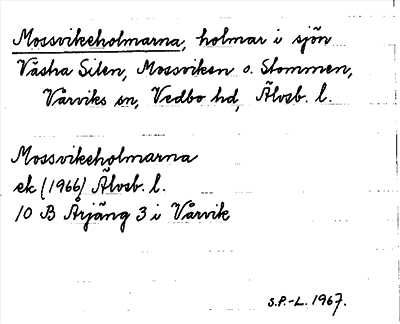 Mossvikeholmarna, holmar i sjön
Västra Silen, Mossviken o. Stommen,
Vårviks sn, Vedbo hd, Älvsb. l.
Mossvikeholmarna
ek (1966) Älvsb. l.
10 B Årjäng 3 i Vårvik
S.P.-L. 1967.